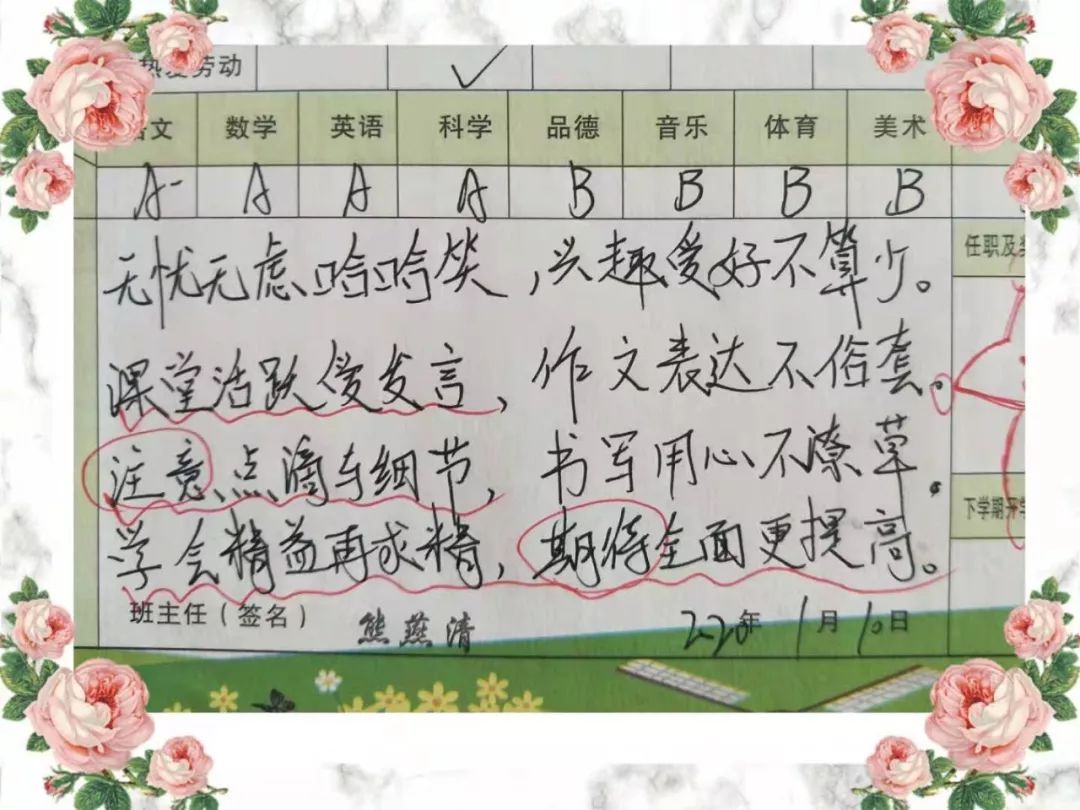 热爱劳动
语文 数学 英语 科学 品德 音乐 体育 美术
A- A A A B B B B
无忧无虑哈哈笑，兴趣爱好不算少。
任职及奖
课堂活跃爱发言，作文表达不俗套。
注意点滴与细节，书写用心不潦草。
下学期开学
学会精益再求精，期待全面更提高。
班主任（签名） 熊燕清 2020年1月10日